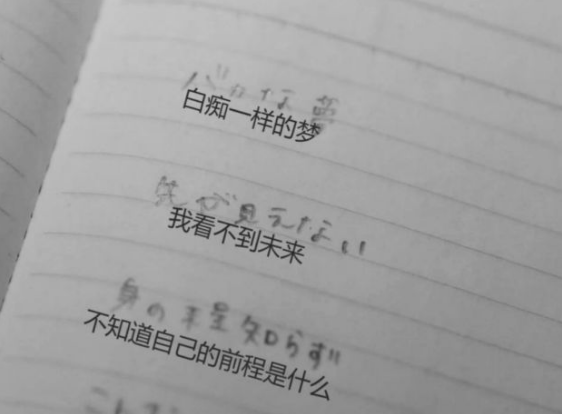 バカな夢
白痴一样的梦
先が見えない
我看不到未来
身の程知らず
不知道自己的前程是什么